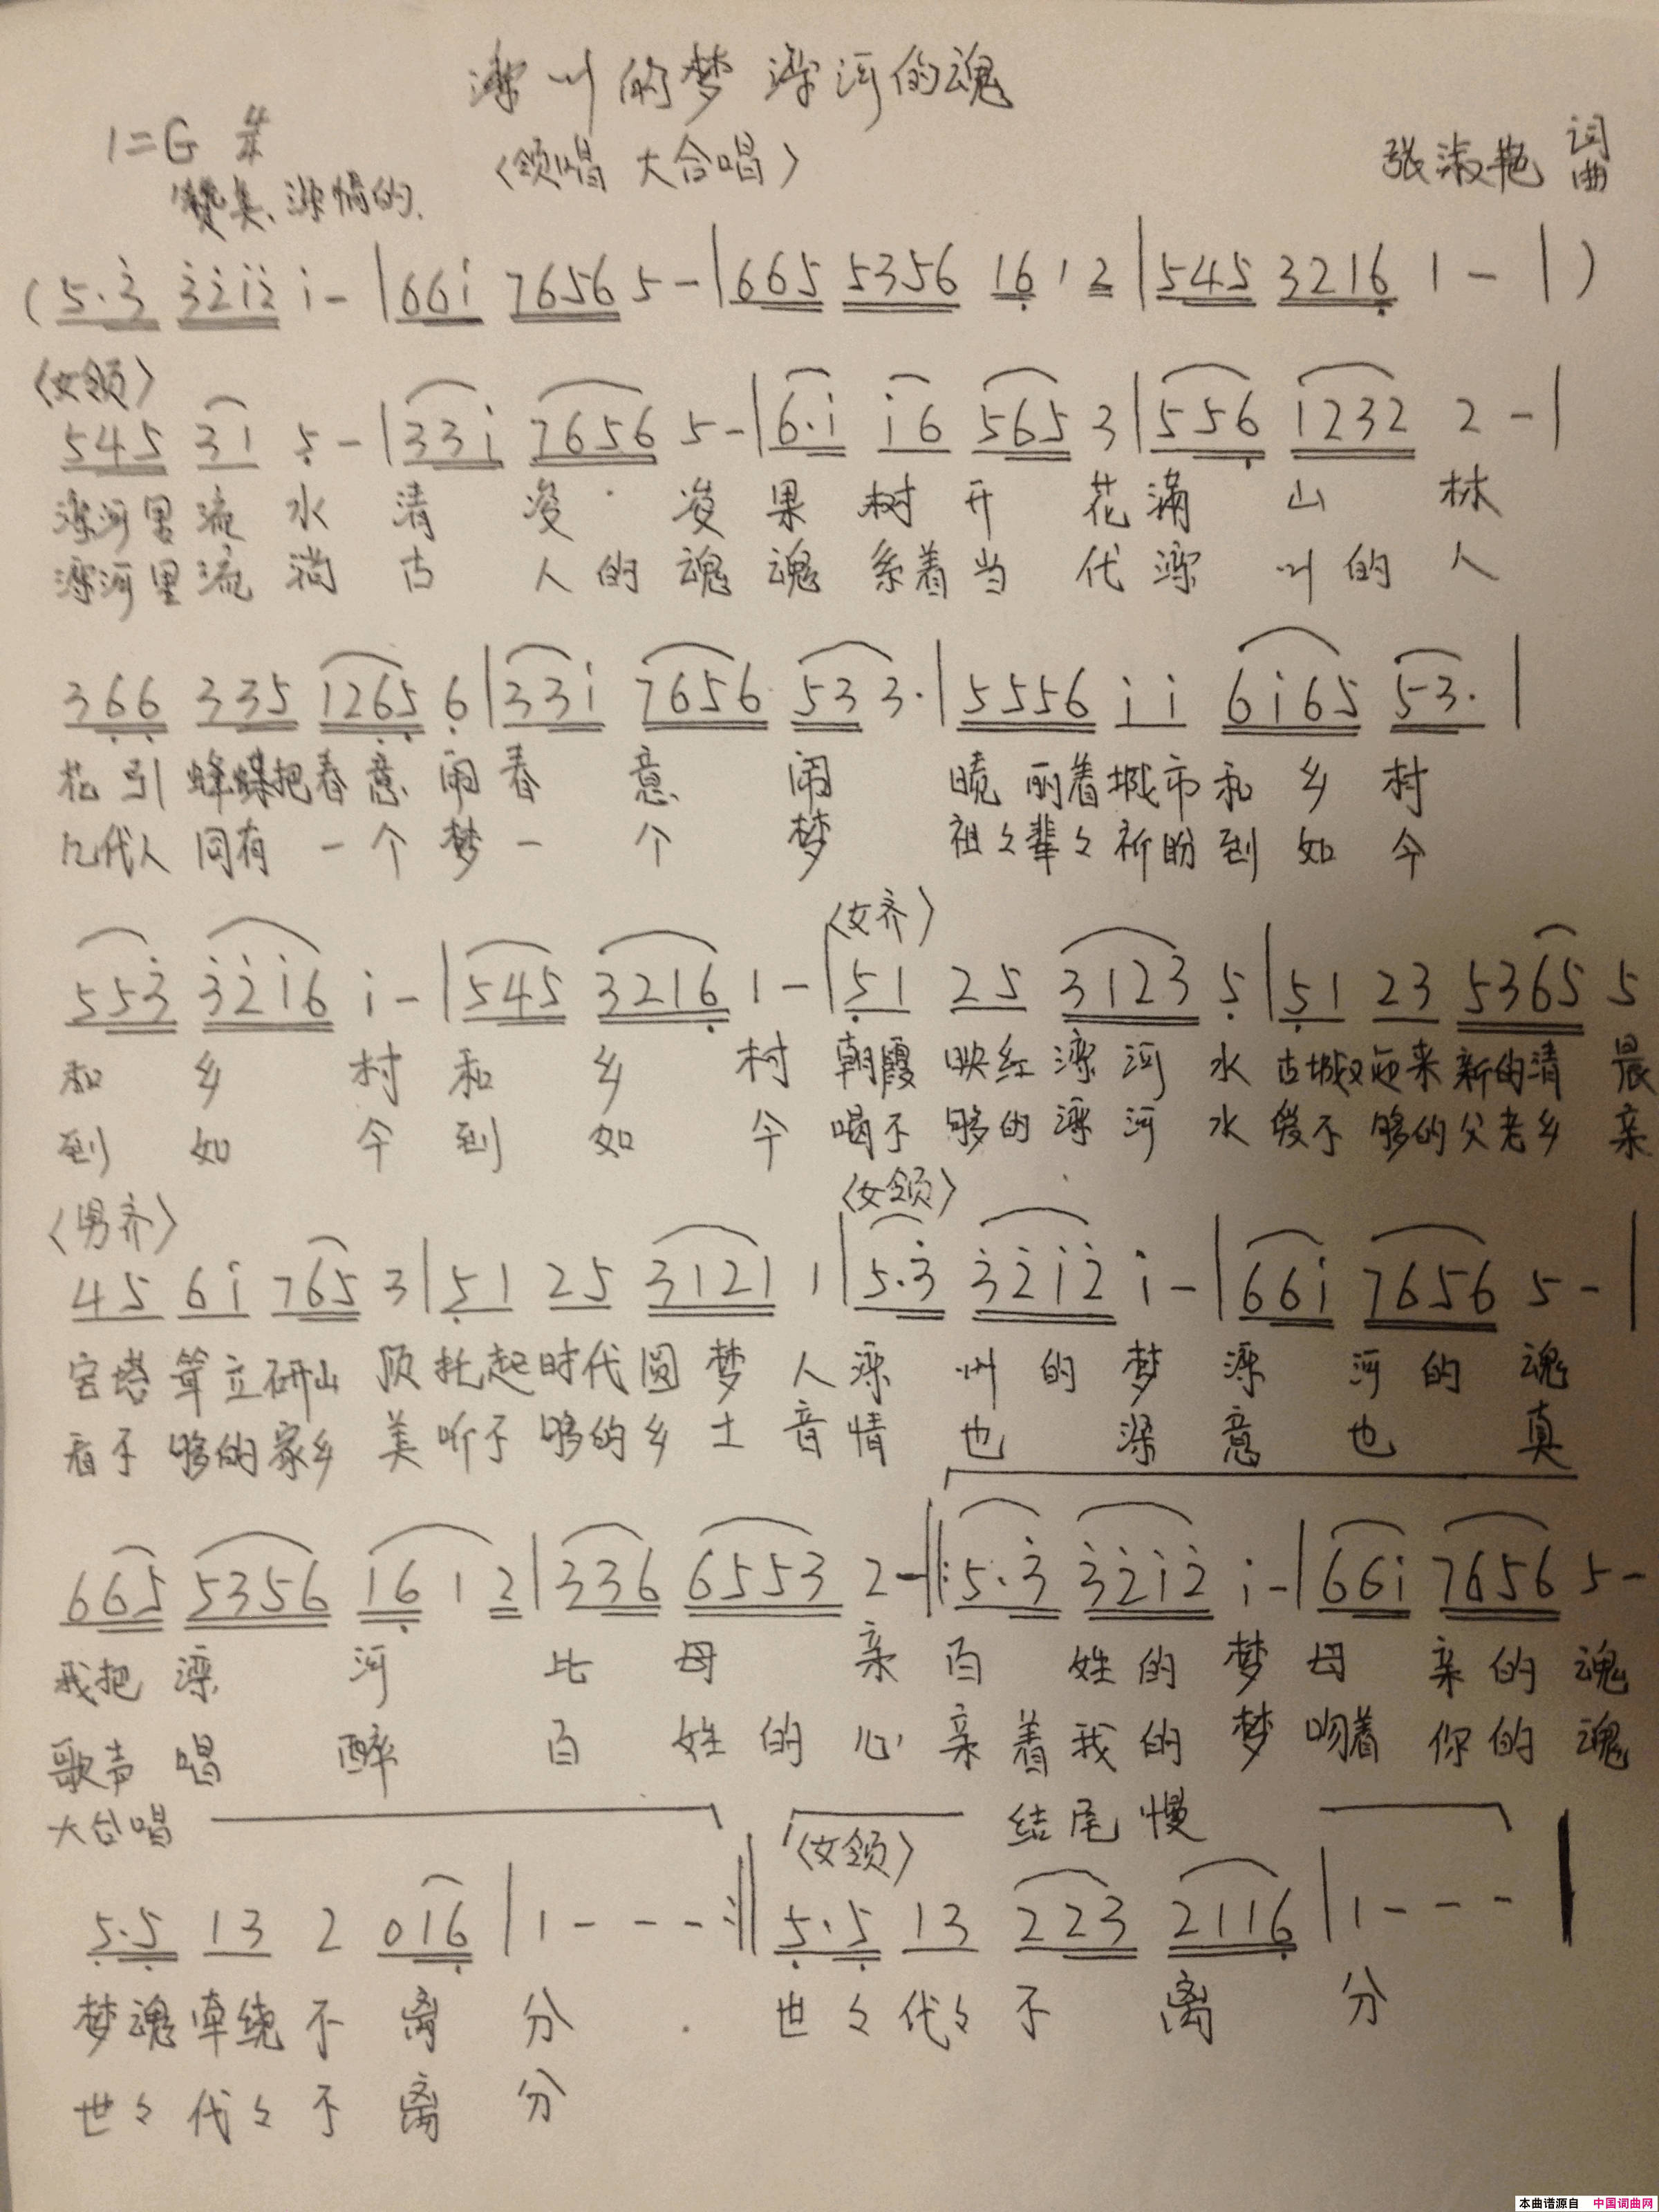 滦州的梦 滦河的魂
1=G 4/4
〈领唱 大合唱〉
张淑艳 词曲
赞美、深情的.
(5·3̇ 3̇2̇1̇2̇ 1̇- |661̇ 7656 5-|665 5356 16̣ 1 2|545 3216̣ 1 - | )
〈女领〉
545 31 5̣ -|331̇ 7656 5-|6·1̇ 1̇6 565 3|556̣ 1232 2 -|
滦河里流水清凌凌果树开花满山林
滦河里流淌古人的魂魂系着当代滦州的人
36̣6̣ 335 126̣5̣ 6̣|331̇ 7656 533 3·|5556 1̇ 1̇ 61̇65 53·|
花引蜂蝶把春意闹春意闹 丽着城市和乡村
几代人同有一个梦一个梦祖々辈々祈盼到如今
〈女齐〉
553̇ 3̇2̇1̇6 1̇-|545 3216̣ 1-|5̣1 25 3123 5̣|5̣1 23 5365 5
和乡村和乡村朝霞映红滦河水古城又迎来新的清晨
到如今到如今喝不够的滦河水爱不够的父老乡亲
〈男齐〉 〈女领〉
45 61̇ 765 3|5̣1 25 3121 1|5·3̇ 3̇2̇1̇2̇ 1̇-|661̇ 7656 5-|
宝塔耸立研山顶托起时代圆梦人滦州的梦滦河的魂
看不够的家乡美听不够的乡土音情也深意也真
665 5356 16̣ 1 2|336 6553 2-‖:5·3̇ 3̇2̇1̇2̇ 1̇-|661̇ 7656 5-
我把滦河比母亲百姓的梦母亲的魂
歌声唱醉百姓的心亲着我的梦吻着你的魂
大合唱 〈女领〉 结尾慢
5̣·5̣ 13 2 016̣|1 - - -:‖5̣·5̣ 13 223 2116̣|1 - - -‖
梦魂牵绕不离分 世々代々不离分
世々代々不离分
本曲谱源自 中国词曲网